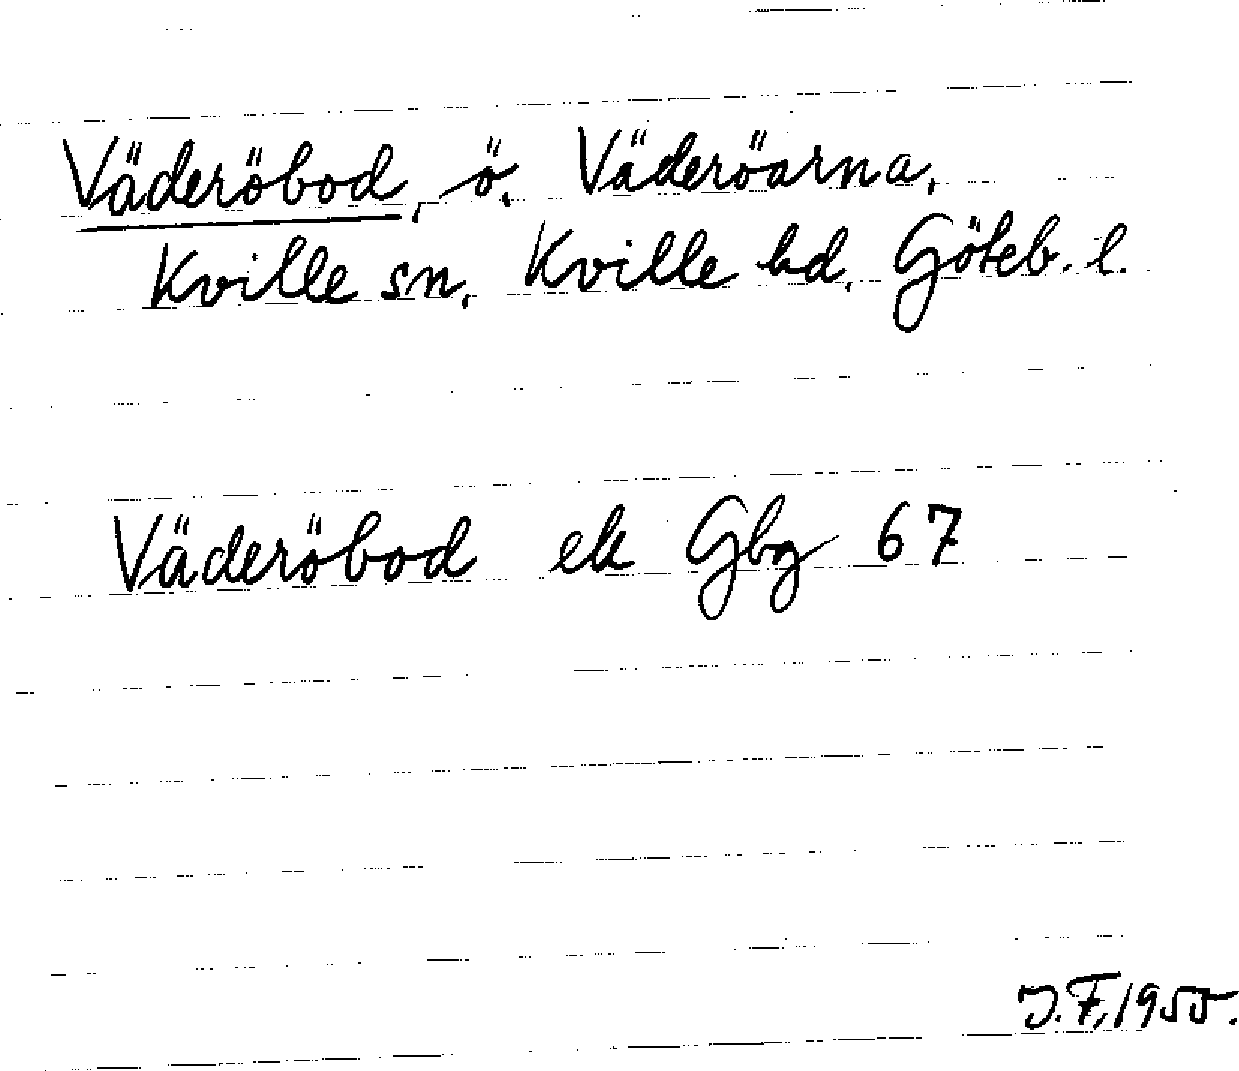 Väderöbod, ö, Väderöarna,
Kville sn, Kville hd, Göteb. l.
Väderöbod ek Gbg 67
J.F, 1955.